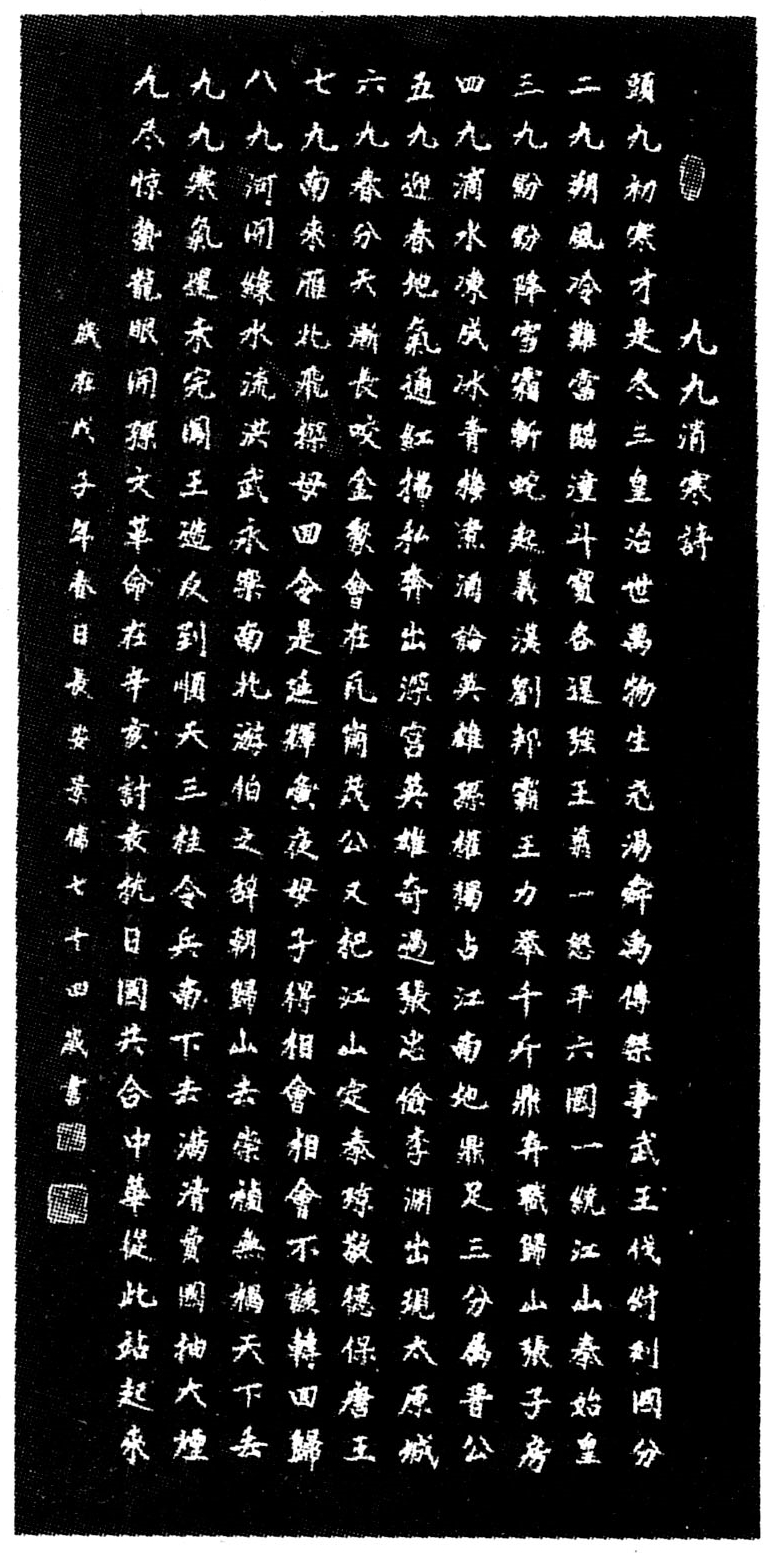 九九消寒詩
頭九初寒才是冬三皇治世萬物生尧湯舜禹傳桀事武王伐紂列國分
二九朔風冷難當臨潼斗寶各逞強王翦一怒平六國一統江山秦始皇
三九紛紛降雪霜斬蛇起義漢劉邦霸王力舉千斤鼎弃職歸山張子房
四九滴水凍成冰青梅煮酒論英雄孫權獨占江南地鼎足三分屬晋公
五九迎春地氣通紅拂私奔出深宮英雄奇遇張忠儉李淵出現太原城
六九春分天漸長咬金聚會在瓦崗茂公又把江山定秦琼敬德保唐王
七九南來雁北飛探母回令是延輝黄夜母子得相會相會不該轉回歸
八九河開綠水流洪武永樂南北游伯文辞朝歸山去崇禎無福天下丢
九九寒氣還未完闖王造反到順天三桂令兵南下去满清賣國抽大煙
九尽惊蟄龍眼開孫文革命在辛亥討袁抗日國共合中華從此站起來
歲在戊子年春日長安景儒七十四歲書